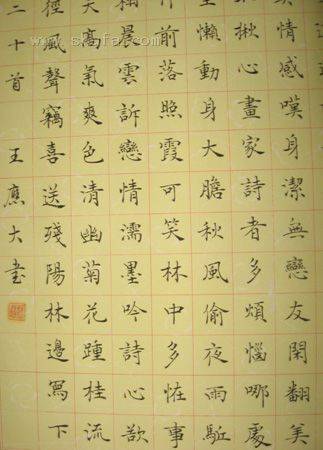 情感嘆身潔無戀友閑翻美
揪心畫家詩者多煩惱哪處
懶動身大膽秋風偷夜雨
前落照霞可笑林中多怪事
雲訴戀情濡墨吟詩心
天高氣爽色清幽菊花踵桂流
徑風聲竊喜送殘陽林邊寫下
二十首 王應大書